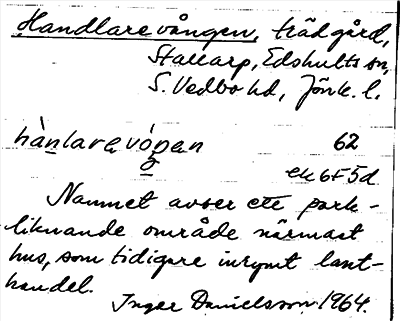 Handlarevången, trädgård,
Stallarp, Edshults sn,
S. Vedbo hd, Jönk. l.
hànlarevóŋen 62
ek 6F5d
Namnet avser ett park-
liknande område närmast
hus, som tidigare inrymt lant-
handel.
Inger Danielsson 1964.